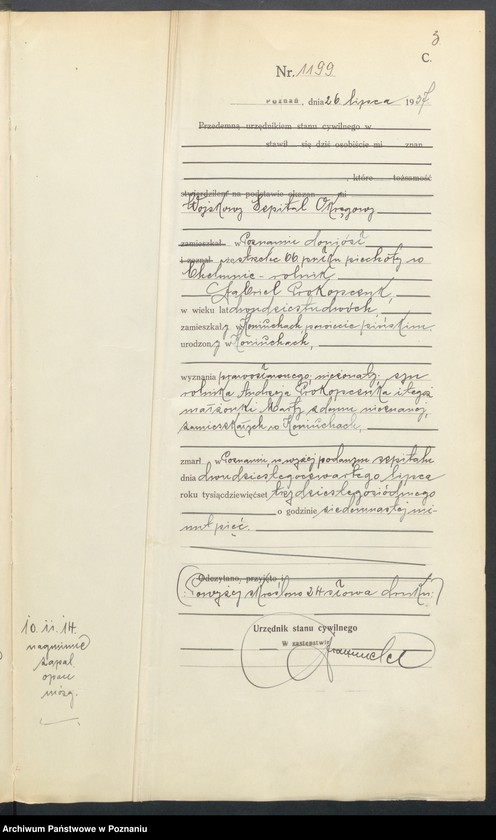 3
C.
Nr. 1199
Poznań, dnia 26 lipca 1937
Przedemną urzędnikiem stanu cywilnego w
stawił się dziś osobiście mi znan
, które tożsamość
stwierdziłem na podstawie okazan mi
Wojskowy Szpital Okręgowy
zamieszkał w Poznaniu doniósł
i zeznał, że strzelec 66 pułku piechoty w
Chełmnie - rolnik
Gabriel Prokopczuk,
w wieku lat dwudziestudwóch,
zamieszkały w Koniuchach powiecie pińskim
urodzony w Koniuchach,
wyznania prawosławnego, nieżonaty, syn
rolnika Andrzeja Prokopczuka i tegoż
małżonki Marty z domu nieznanej,
zamieszkałych w Koniuchach,
zmarł w Poznaniu, w wyżej podanym szpitalu
dnia dwudziestegoczwartego lipca
roku tysiącdziewięćset trzydziestegosiódmego
o godzinie siedemnastej mi-
nut pięć.
Odczytano, przyjęto i
Powyżej skreślono 24 słowa druku.
Urzędnik stanu cywilnego
W zastępstwie
10. II. 14.
nagminne
zapal
opon
mózg.
Archiwum Państwowe w Poznaniu